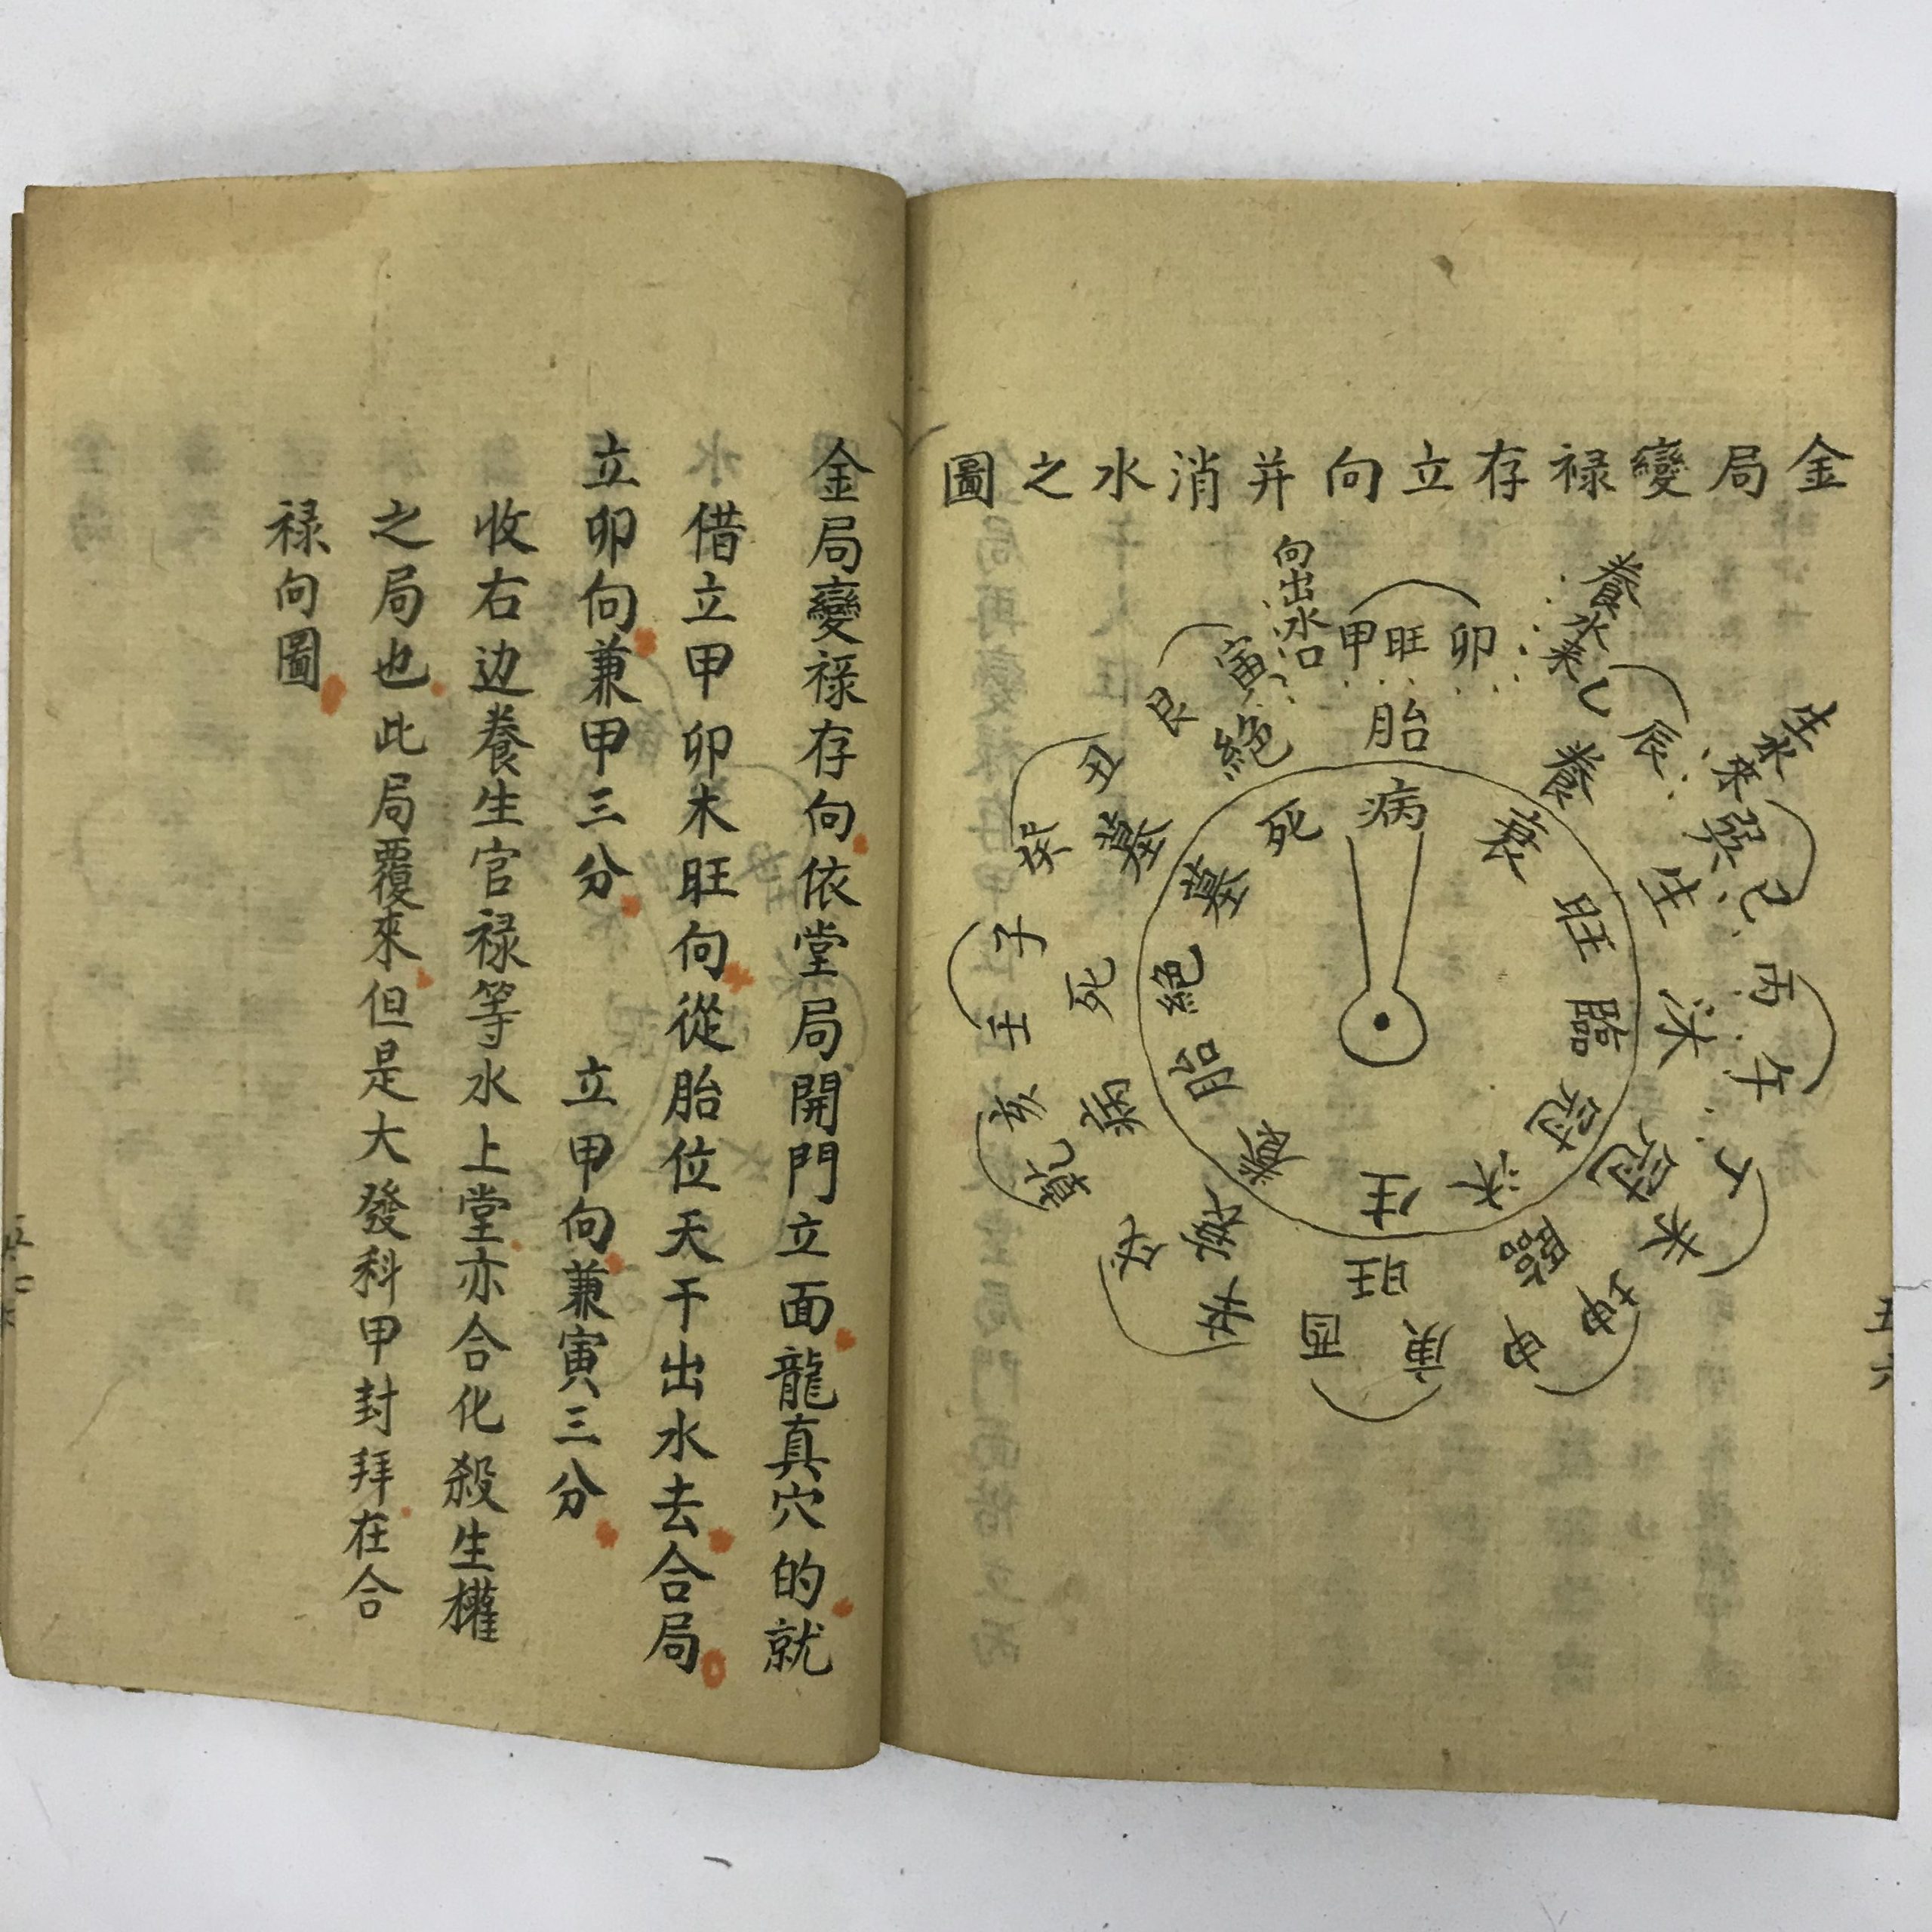 金局變禄存立向并消水之圖
向出水口
養水来
生水來
甲旺卯
乙辰
巽巳
丙午
丁未
坤申
庚酉
辛戌
乾亥
壬子
癸丑
艮寅
胎
養
生
沐
冠
臨
旺
衰
病
死
墓
絕
病
衰
旺
臨
冠
沐
生
養
胎
絕
墓
死
五六
金局變禄存向依堂局開門立面龍真穴的就
借立甲卯木旺向從胎位天干出水去合局
立卯向兼甲三分 立甲向兼寅三分
收右边養生官禄等水上堂亦合化殺生權
之局也此局覆來但是大發科甲封拜在合
禄向圖